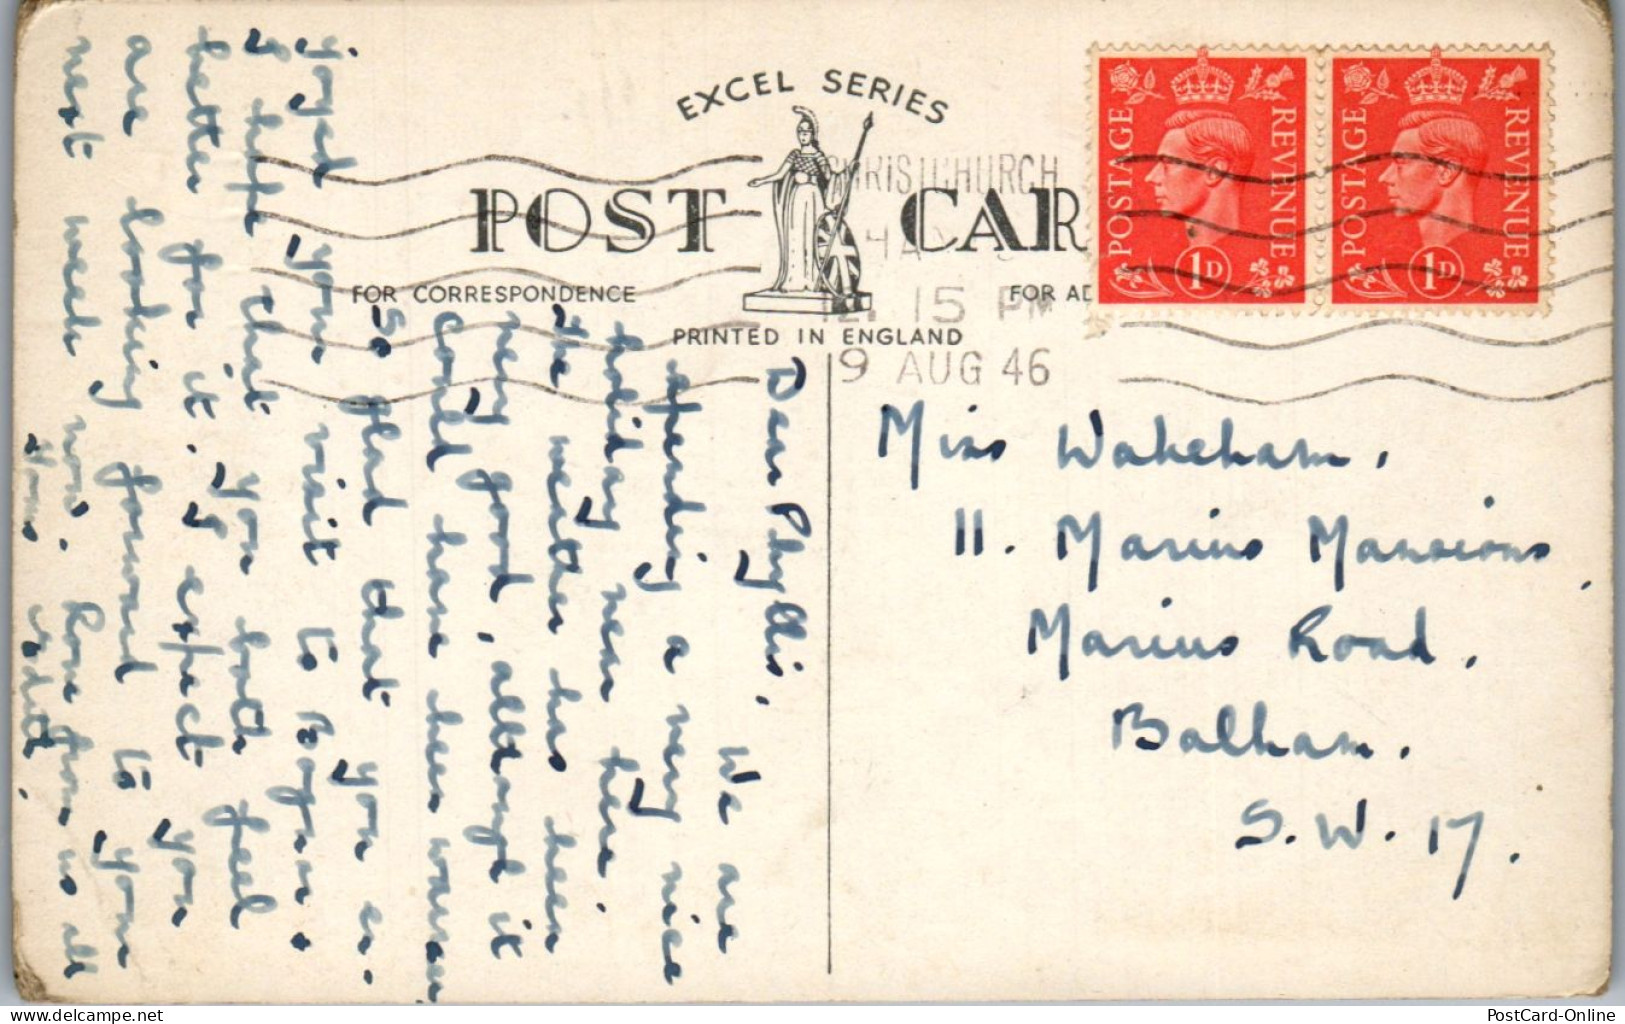 EXCEL SERIES
POST CAR
FOR CORRESPONDENCE
FOR AD
PRINTED IN ENGLAND
CHRISTCHURCH
HA
12. 15 PM
9 AUG 46
POSTAGE REVENUE
1D
POSTAGE REVENUE
1D
Dear Phyllis,
We are
spending a very nice
holiday near here.
The weather has been
very good, although it
could have been warmer
So glad that you en-
joyed your visit to Bognor.
I hope that you both feel
better for it. I expect you
are looking forward to your
next week now. Love from us all
Yours Edith.
Miss Wakeham.
11. Marius Mansions,
Marius Road.
Balham.
S.W. 17.
PostCard-Online